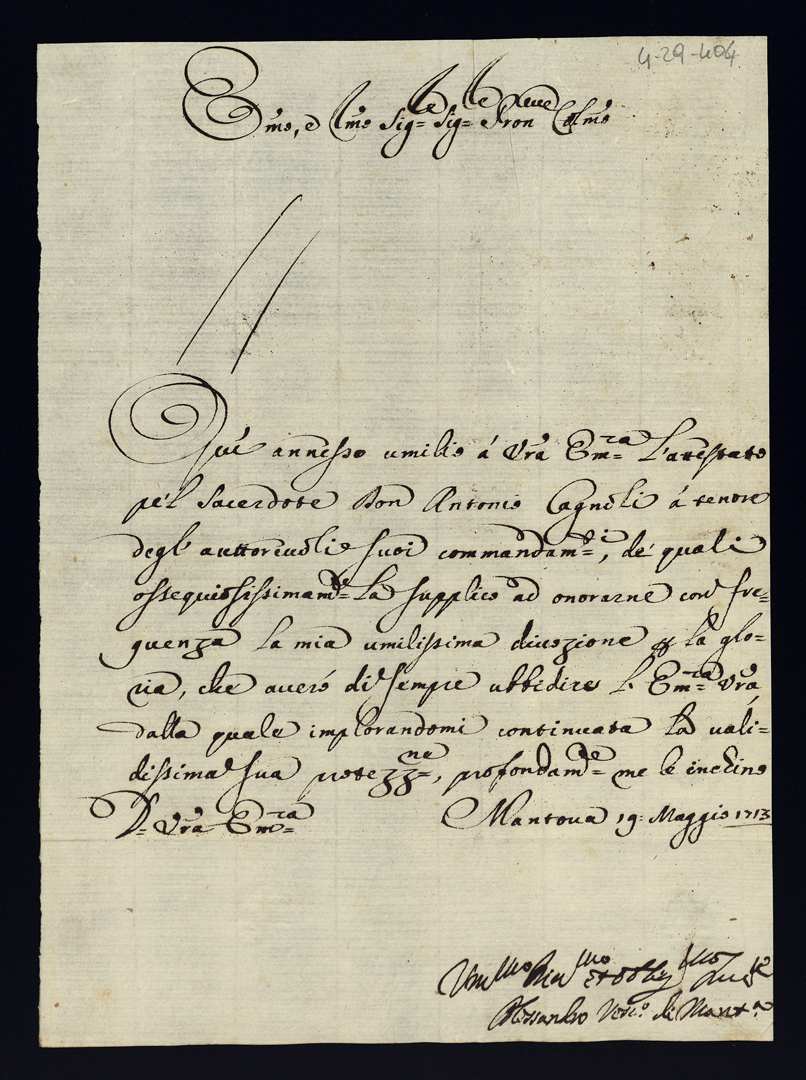 4-29-404
Em̃o, e Rm̃o Sig.re Sig.re Pron.e Colm̃o
Quì annesso umilio á Vrã Em.za l'attestato
pel Sacerdote Don Antonio Cagnoli á tenore
degl'auttoreuoli suoi commandam.ti, dé quali
ossequiosissimam.te La supplico ad onorarne con fre=
quenza la mia umilissima diuozione p la glo=
ria, che auerò di sempre ubbidire l'Em.za Vrã,
dalla quale implorandomi continuata la uali=
dissima sua protezz.ne, profondam.te me le inchino
D. Vrã Em.za Mantoua 19. Maggio 1713
Um.mo Diu.mo et Obb.mo Ser.re
Alessandro Vesc.o di Mant.a